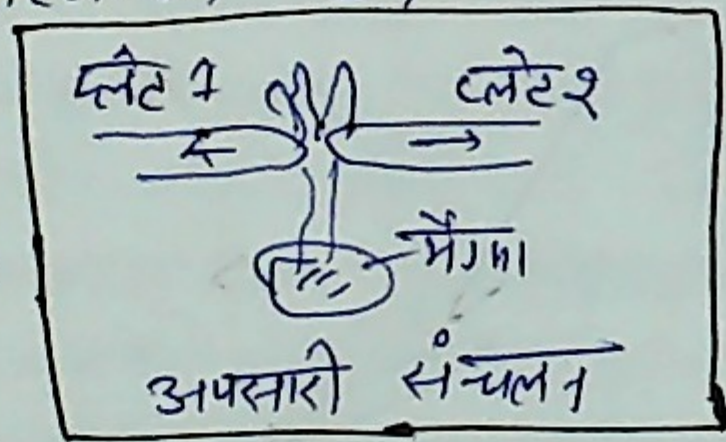 प्लेट 1 प्लेट 2
मैग्मा
अपसारी संचलन